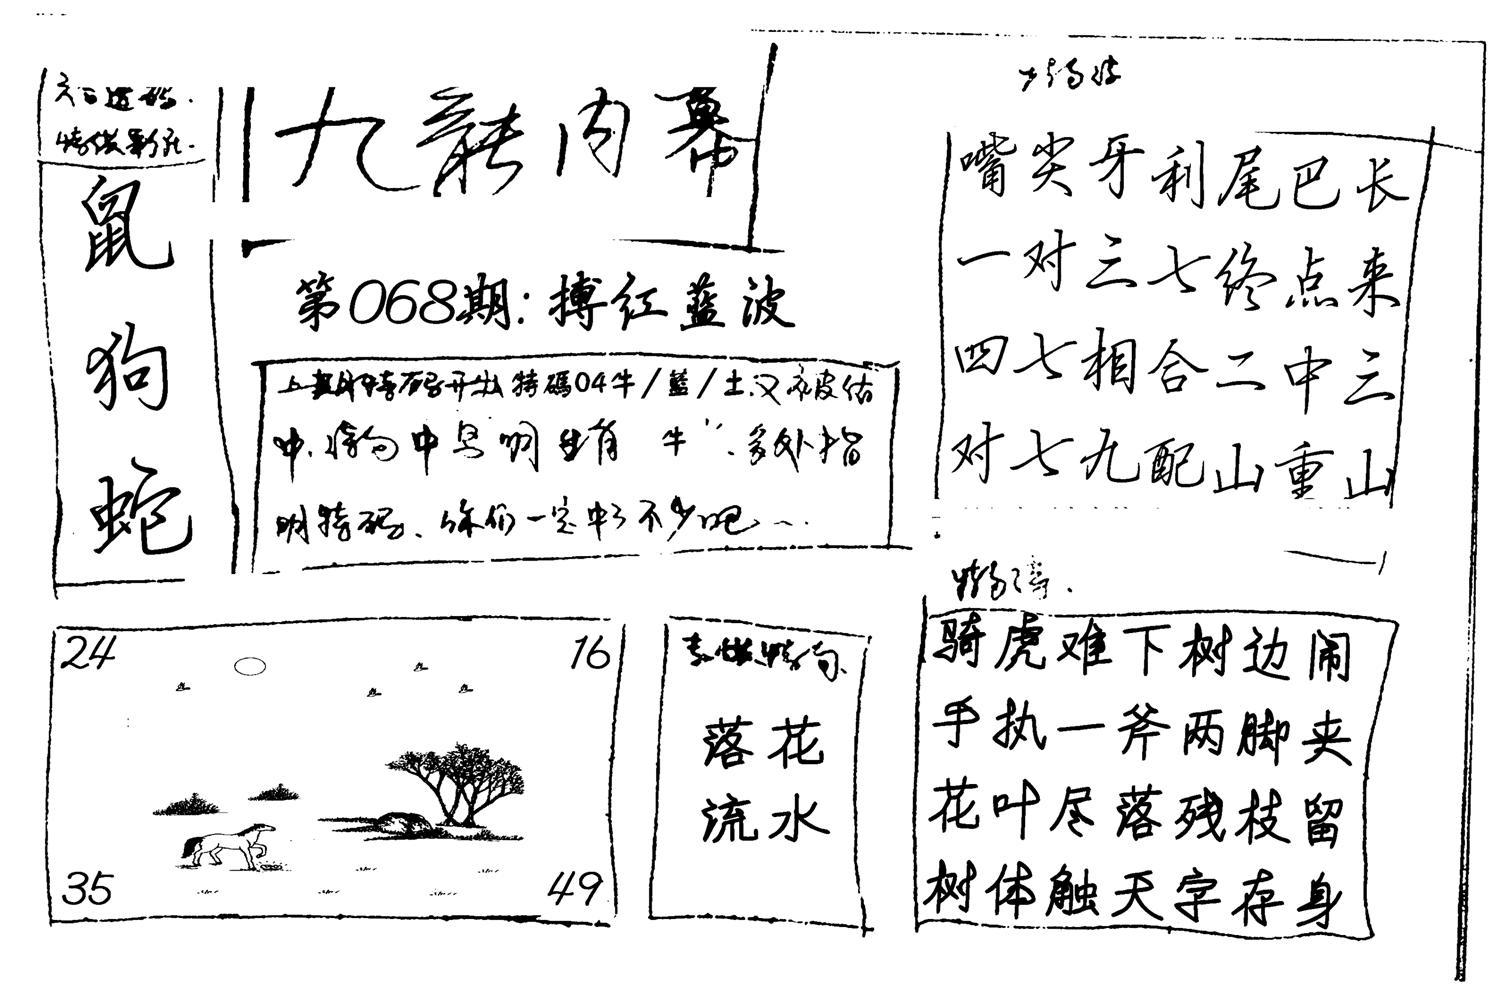 九龍内幕
第068期:搏红蓝波
鼠
狗
蛇
特码开出特碼04牛/藍/土.又被估
中.中生肖 牛".另外指
明特码、你们一定中了不少吧
嘴尖牙利尾巴长
一对三七终点来
四七相合二中三
对七九配山重山
24
16
35
49
落花
流水
骑虎难下树边闹
手执一斧两脚夹
花叶尽落残枝留
树体触天字存身